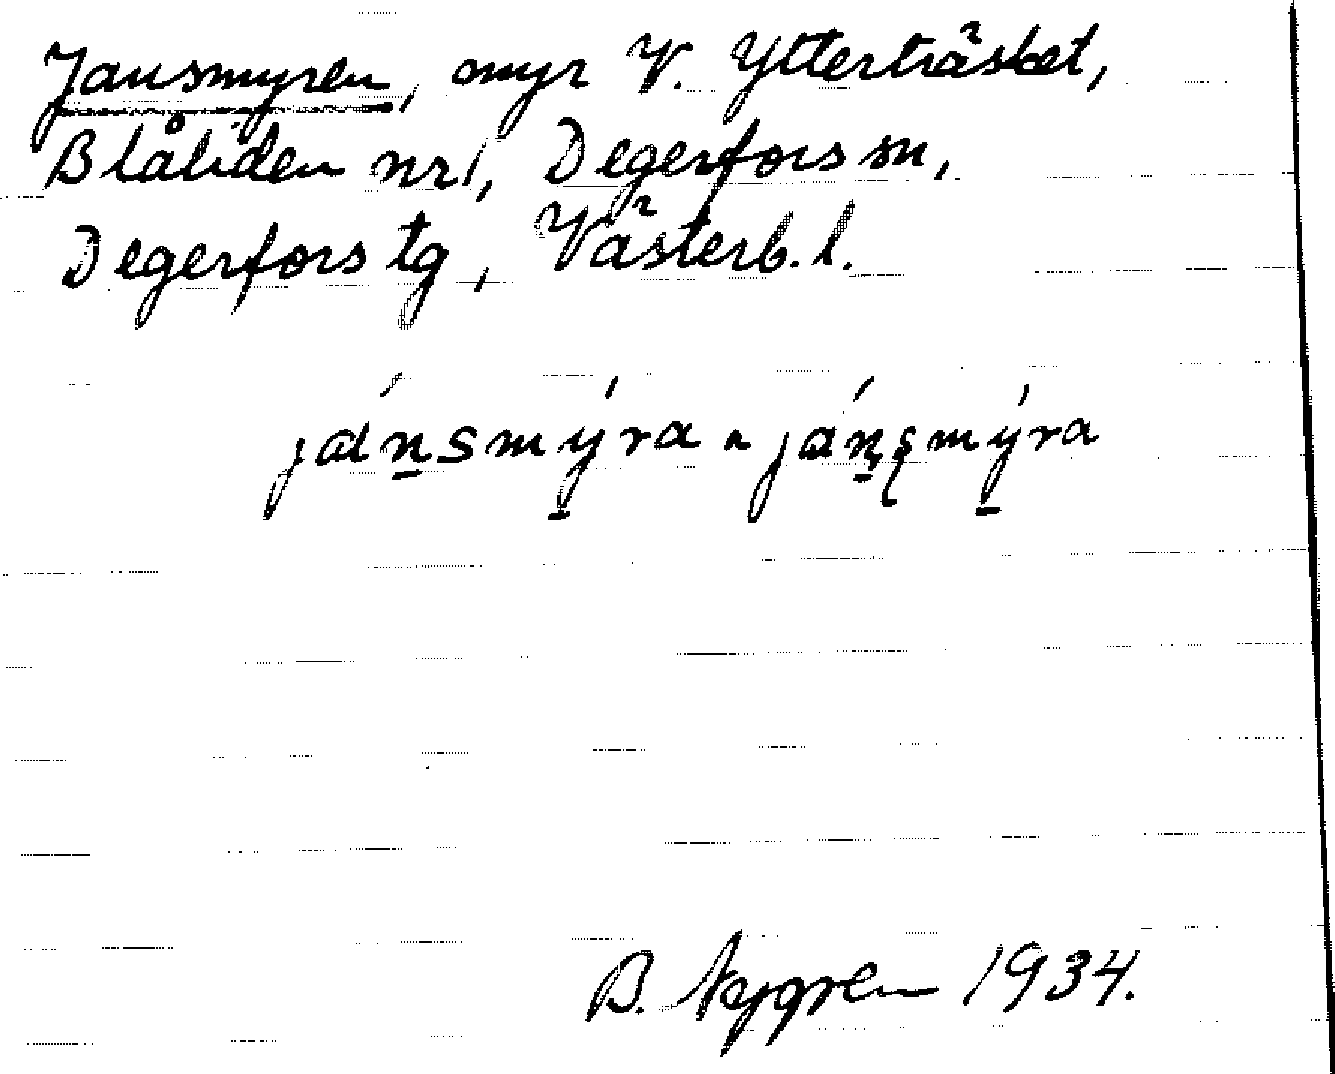 Jansmyren, myr V. Ytterträsket,
Blåliden nr 1, Degerfors sn,
Degerfors tg, Västerb. l.
ján̲smý̲ra ~ ján̲ʂmý̲ra
B. Nygren 1934.